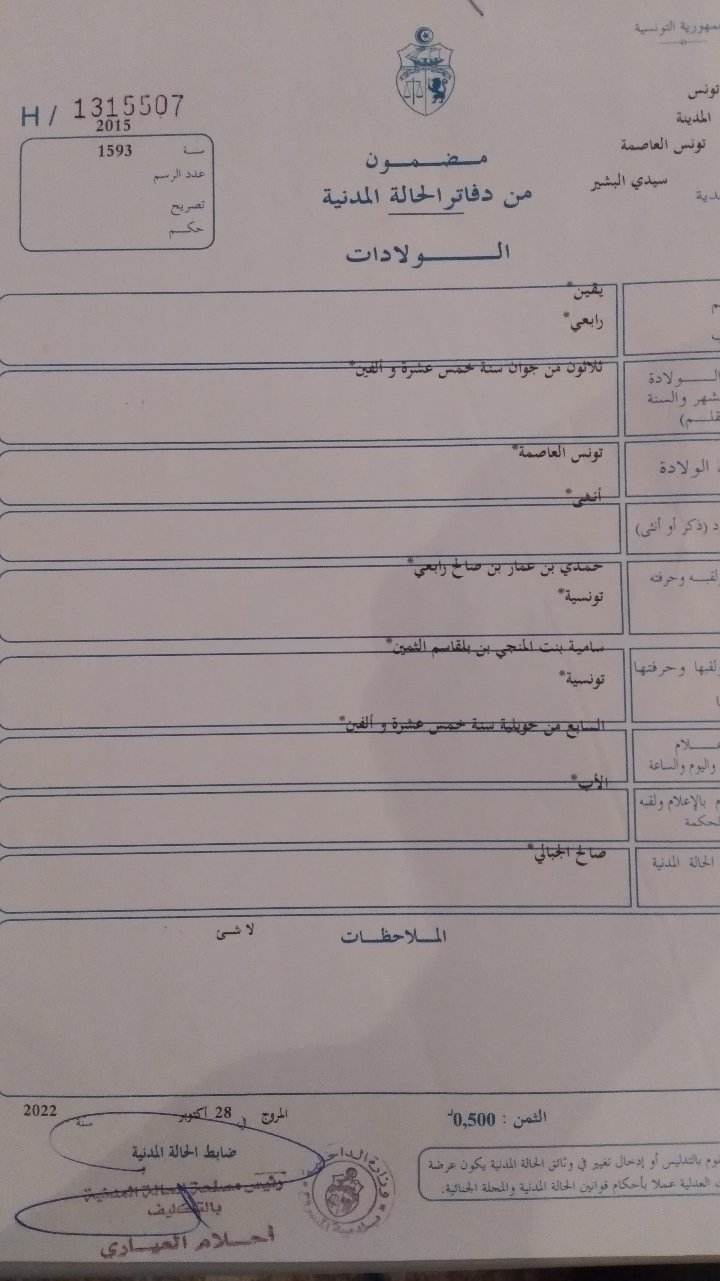 الجمهورية التونسية
تونس
المدينة
تونس العاصمة
سيدي البشير
H / 1315507
2015
سنة 1593
عدد الرسم
تصريح
حكم
مضمون
من دفاتر الحالة المدنية
الولادات
يقين*
رابعي*
ثلاثون من جوان سنة خمس عشرة و ألفين*
الولادة
والسنة
تونس العاصمة*
الولادة
أنثى*
(ذكر أو أنثى)
حمدي بن عمار بن صالح رابعي*
ولقبه وحرفته
تونسية*
سامية بنت المنجي بن بلقاسم الثمين*
ولقبها وحرفتها
تونسية*
السابع من جويلية سنة خمس عشرة و ألفين*
واليوم والساعة
الأب*
بالإعلام ولقبه
صالح الجبالي*
الحالة المدنية
الملاحظات
لا شئ
الثمن : 0,500د
المروج في 28 أكتوبر سنة 2022
ضابط الحالة المدنية
رئيس مصلحة الحالة المدنية
بالتكليف
أحلام العياري
بالتدليس أو إدخال تغيير في وثائق الحالة المدنية يكون عرضة
العدلية عملا بأحكام قوانين الحالة المدنية والمجلة الجنائية.